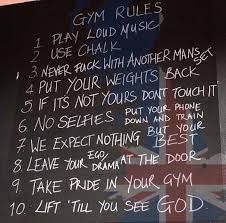 GYM RULES
1 PLAY LOUD MUSIC
2 USE CHALK
3 NEVER FUCK WITH ANOTHER MANS SET
4 PUT YOUR WEIGHTS BACK
5 IF ITS NOT YOURS DON'T TOUCH IT
6. NO SELFIES PUT YOUR PHONE DOWN AND TRAIN
7. WE EXPECT NOTHING BUT YOUR BEST
8. LEAVE YOUR EGO DRAMA AT THE DOOR
9. TAKE PRIDE IN YOUR GYM
10. LIFT 'TILL YOU SEE GOD.